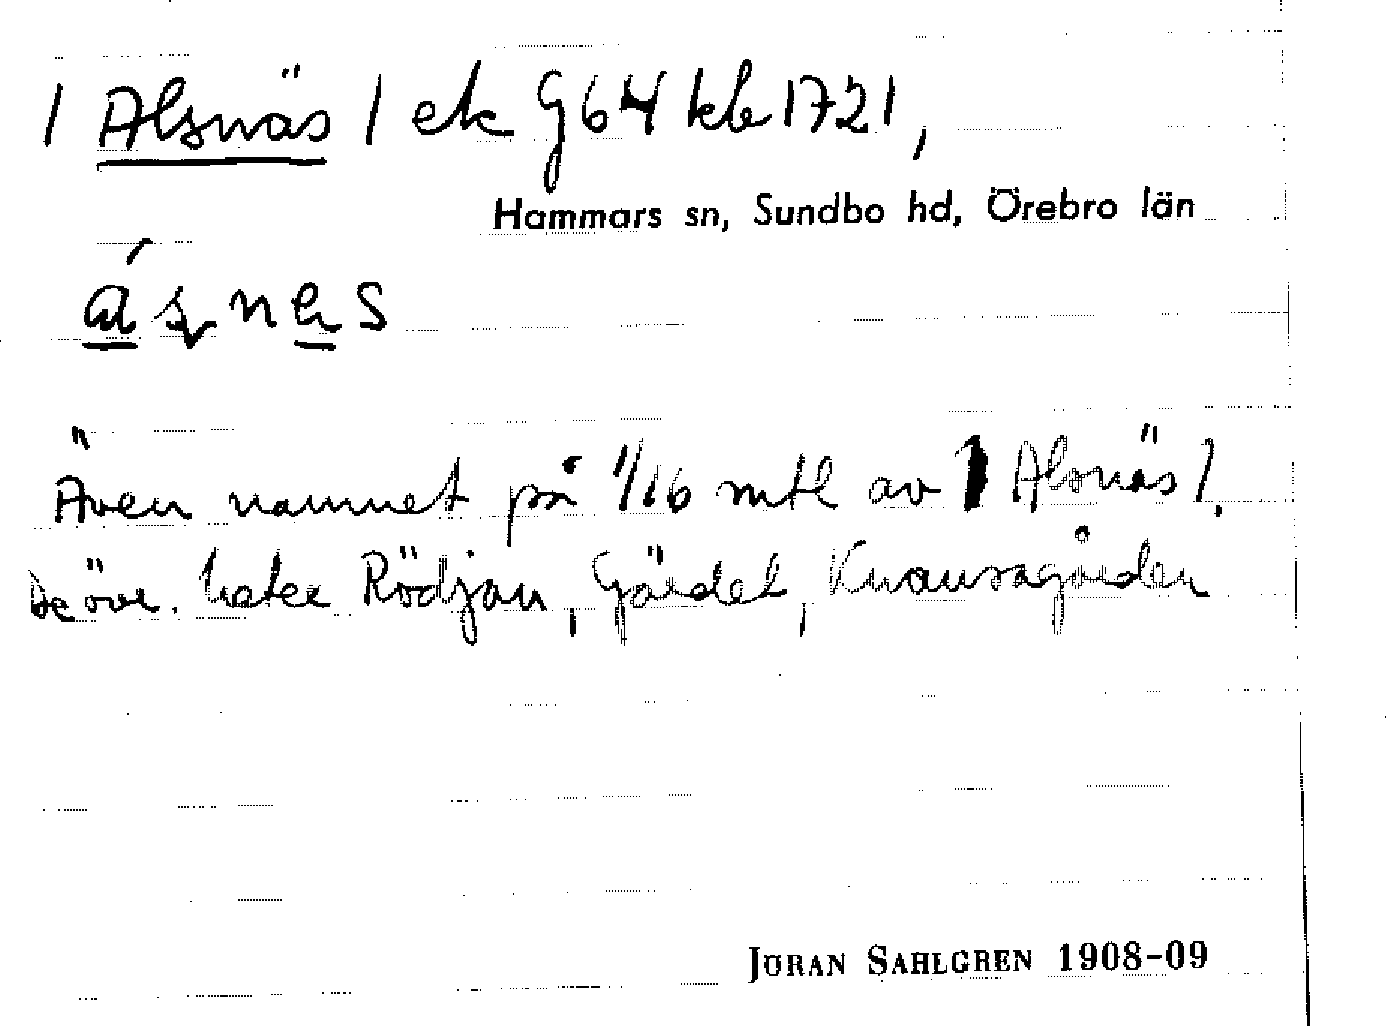 / Alsnäs / ek G64 kb 1721,
Hammars sn, Sundbo hd, Örebro län
ásnes
Även namnet på 1/16 mtl av / Alsnäs /.
De övr. heter Rödjan, Gärdet, Knausagården
JÖRAN SAHLGREN 1908-09